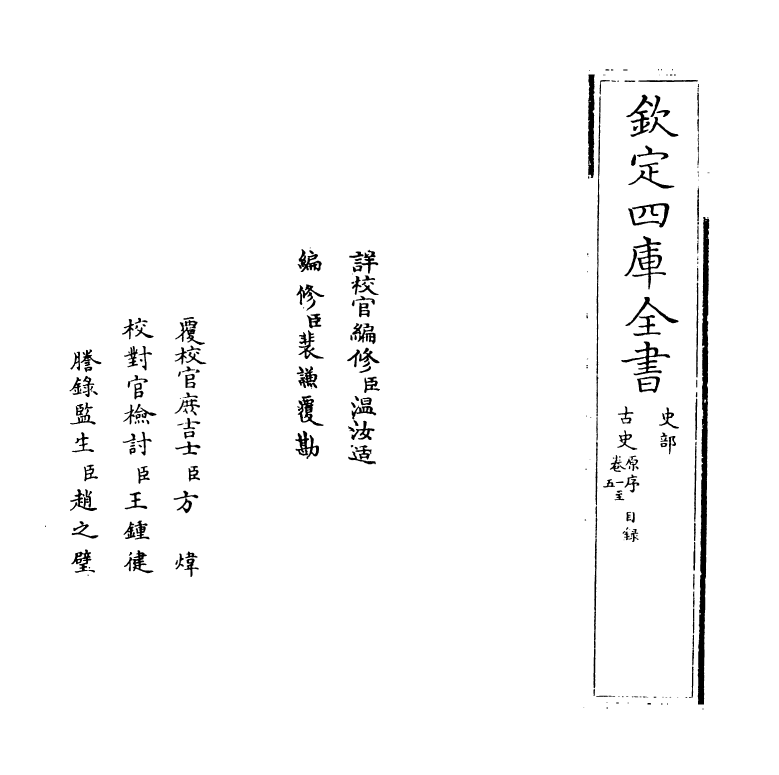 欽定四庫全書
史部
古史
原序 目録
卷一至
五
詳校官編修臣温汝适
編修臣裴謙覆勘
覆校官庶吉士臣方煒
校對官檢討臣王鍾健
謄錄監生臣趙之璧